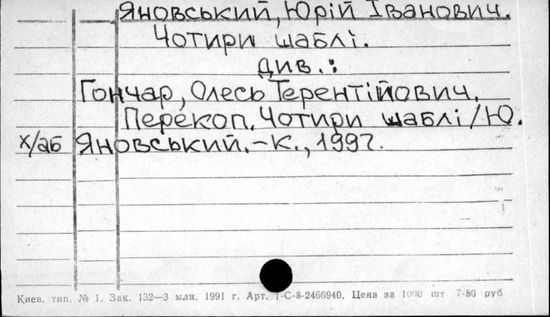 Яновський, Юрій Іванович.
Чотири шаблі.
див.:
Гончар, Олесь Терентійович.
Перекоп. Чотири шаблі / Ю.
х/аб Яновський. – К., 1997.
Киев. тип. № 1. Зак. 132—3 млн. 1991 г. Арт. 1-С-8-2466940. Цена за 1000 шт 7-80 руб